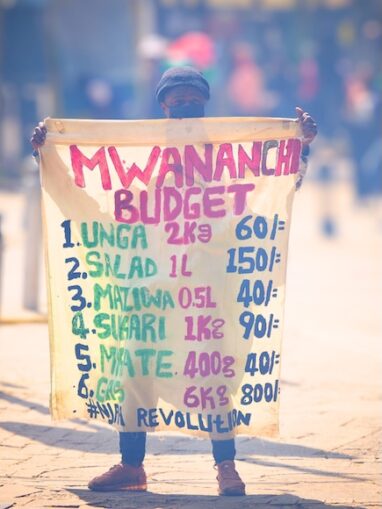 MWANANCHI
BUDGET
1. UNGA 2Kg 60/=
2. SALAD 1L 150/=
3. MAZIWA 0.5L 40/=
4. SUKARI 1Kg 90/=
5. MKATE 400g 40/=
6. GAS 6Kg 800/=
#NJAA REVOLUTION